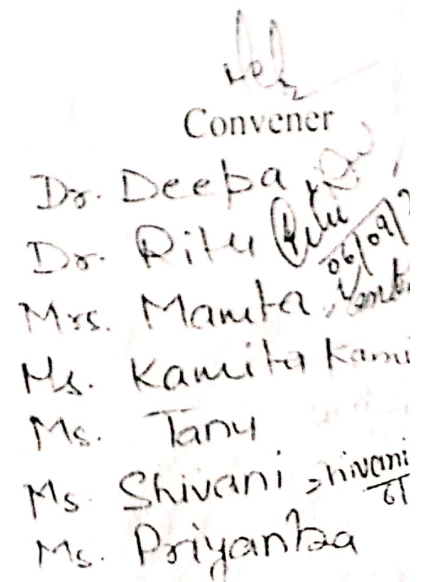 Convener
Dr. Deepa
Dr. Ritu Ritu 06/09/
Mrs. Mamta
Ms. Kamita Kami
Ms. Tanu
Ms. Shivani Shivani
Ms. Priyanka